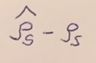 ρ̂ₛ - ρₛ